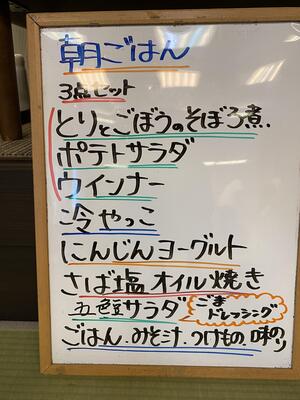 朝ごはん
3点セット
とりとごぼうのそぼろ煮.
ポテトサラダ
ウインナー
冷やっこ
にんじんヨーグルト
さば塩オイル焼き
五色豆サラダ
ごま
ドレッシング
ごはん.みそ汁.つけもの.味のり